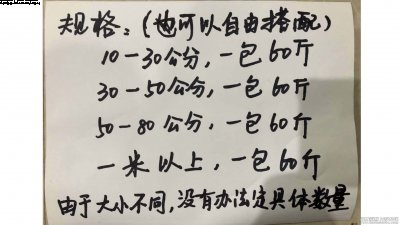 规格:(也可以自由搭配)
10-30公分,一包60斤
30-50公分,一包60斤
50-80公分,一包60斤
一米以上,一包60斤
由于大小不同,没有办法定具体数量